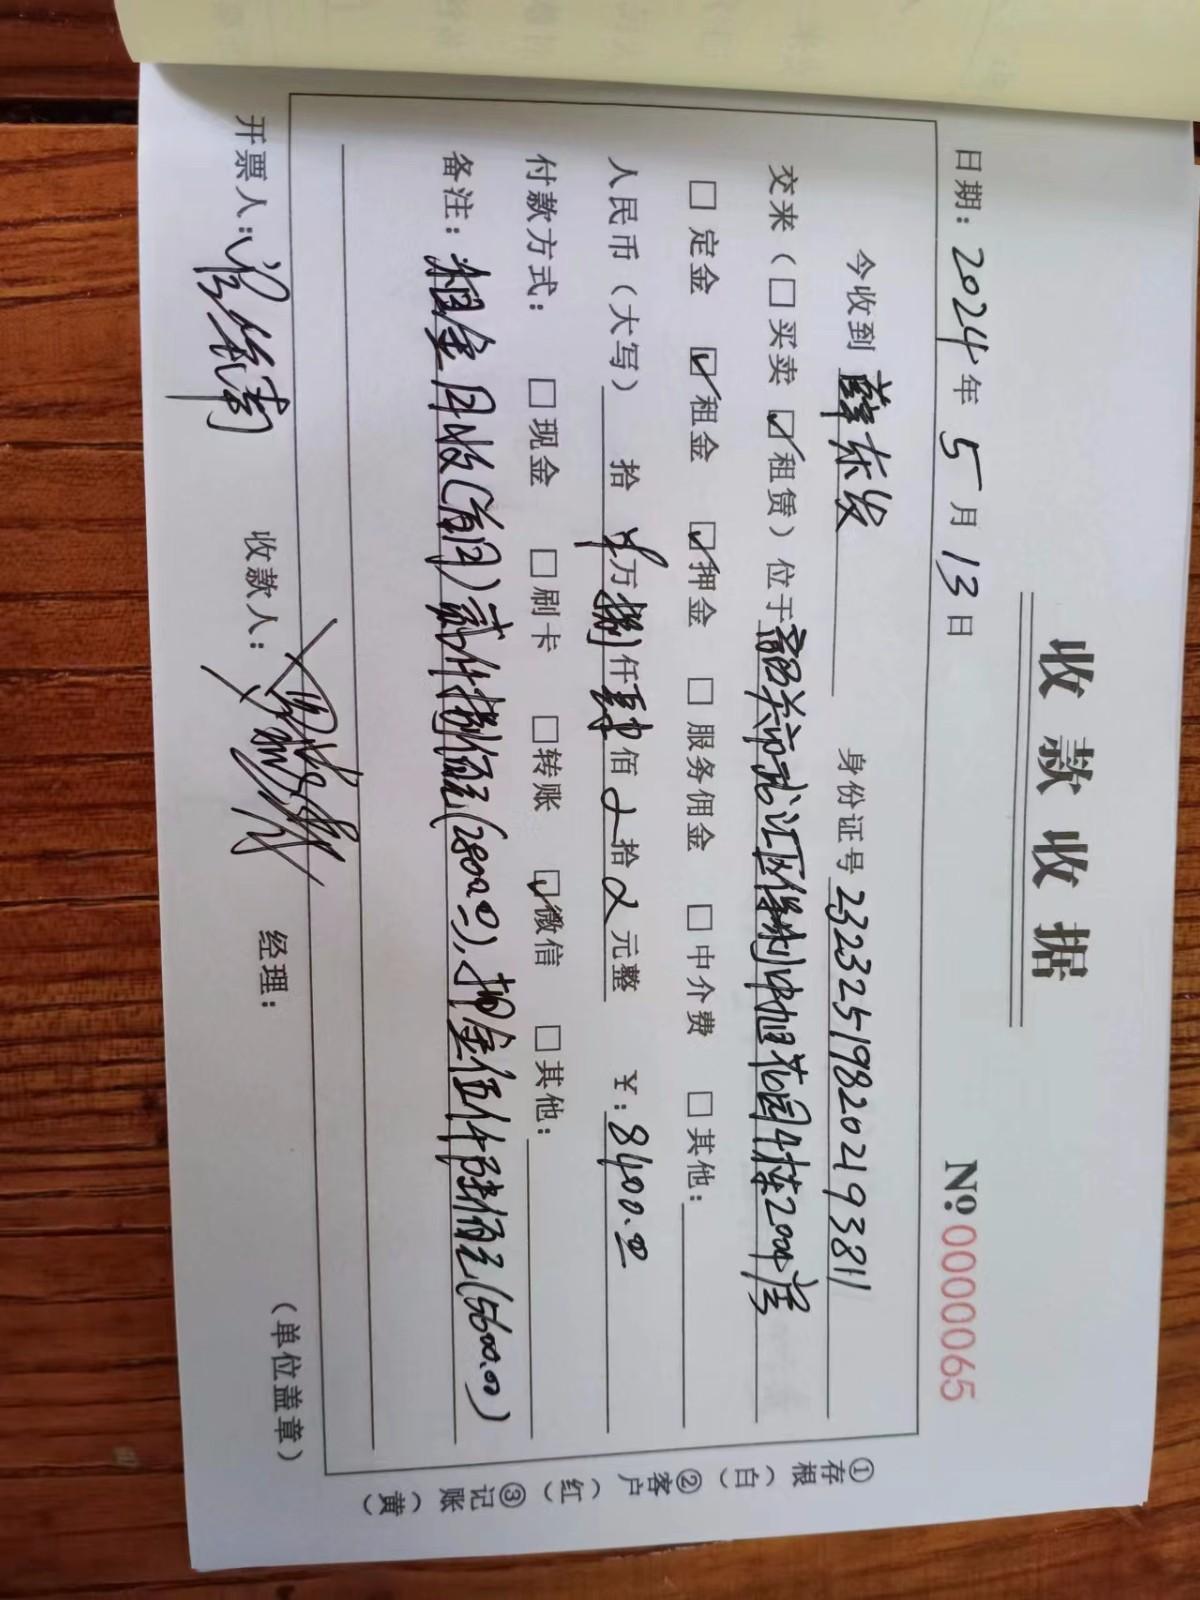 收款收据
日期：2024年5月13日 №0000065
今收到 薛东发 身份证号 232325198202193811
交来（□买卖 ☑租赁）位于韶关市武江区保利中旭花园4栋2004房
□定金 ☑租金 ☑押金 □服务佣金 □中介费 □其他：
人民币（大写） 拾 万捌仟肆佰 拾 元整 ￥：8400.00
付款方式： □现金 □刷卡 □转账 ☑微信 □其他：
备注：租金月收(首月)贰仟捌佰元(2800.00)，押金伍仟陆佰元(5600.00)
开票人： 收款人： 经理： （单位盖章）
①存根（白）②客户（红）③记账（黄）